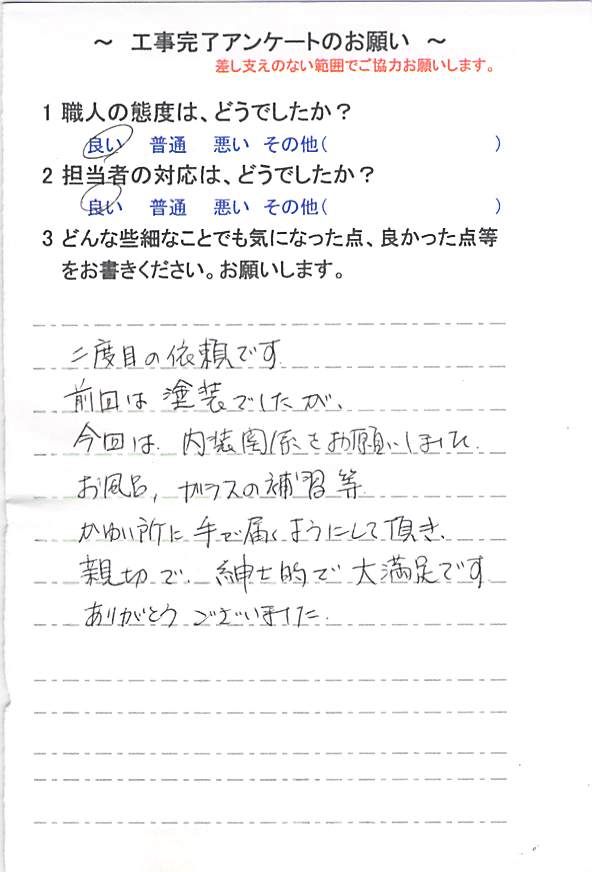 ～ 工事完了アンケートのお願い ～
差し支えのない範囲でご協力お願いします。
1 職人の態度は、どうでしたか？
良い 普通 悪い その他( )
2 担当者の対応は、どうでしたか？
良い 普通 悪い その他( )
3 どんな些細なことでも気になった点、良かった点等
をお書きください。お願いします。
二度目の依頼です
前回は 塗装でしたが、
今回は、内装関係をお願いしました.
お風呂, ガラスの補習等
かゆい所に 手で届くようにして頂き、
親切で、紳士的で 大満足です
ありがとう ございました.